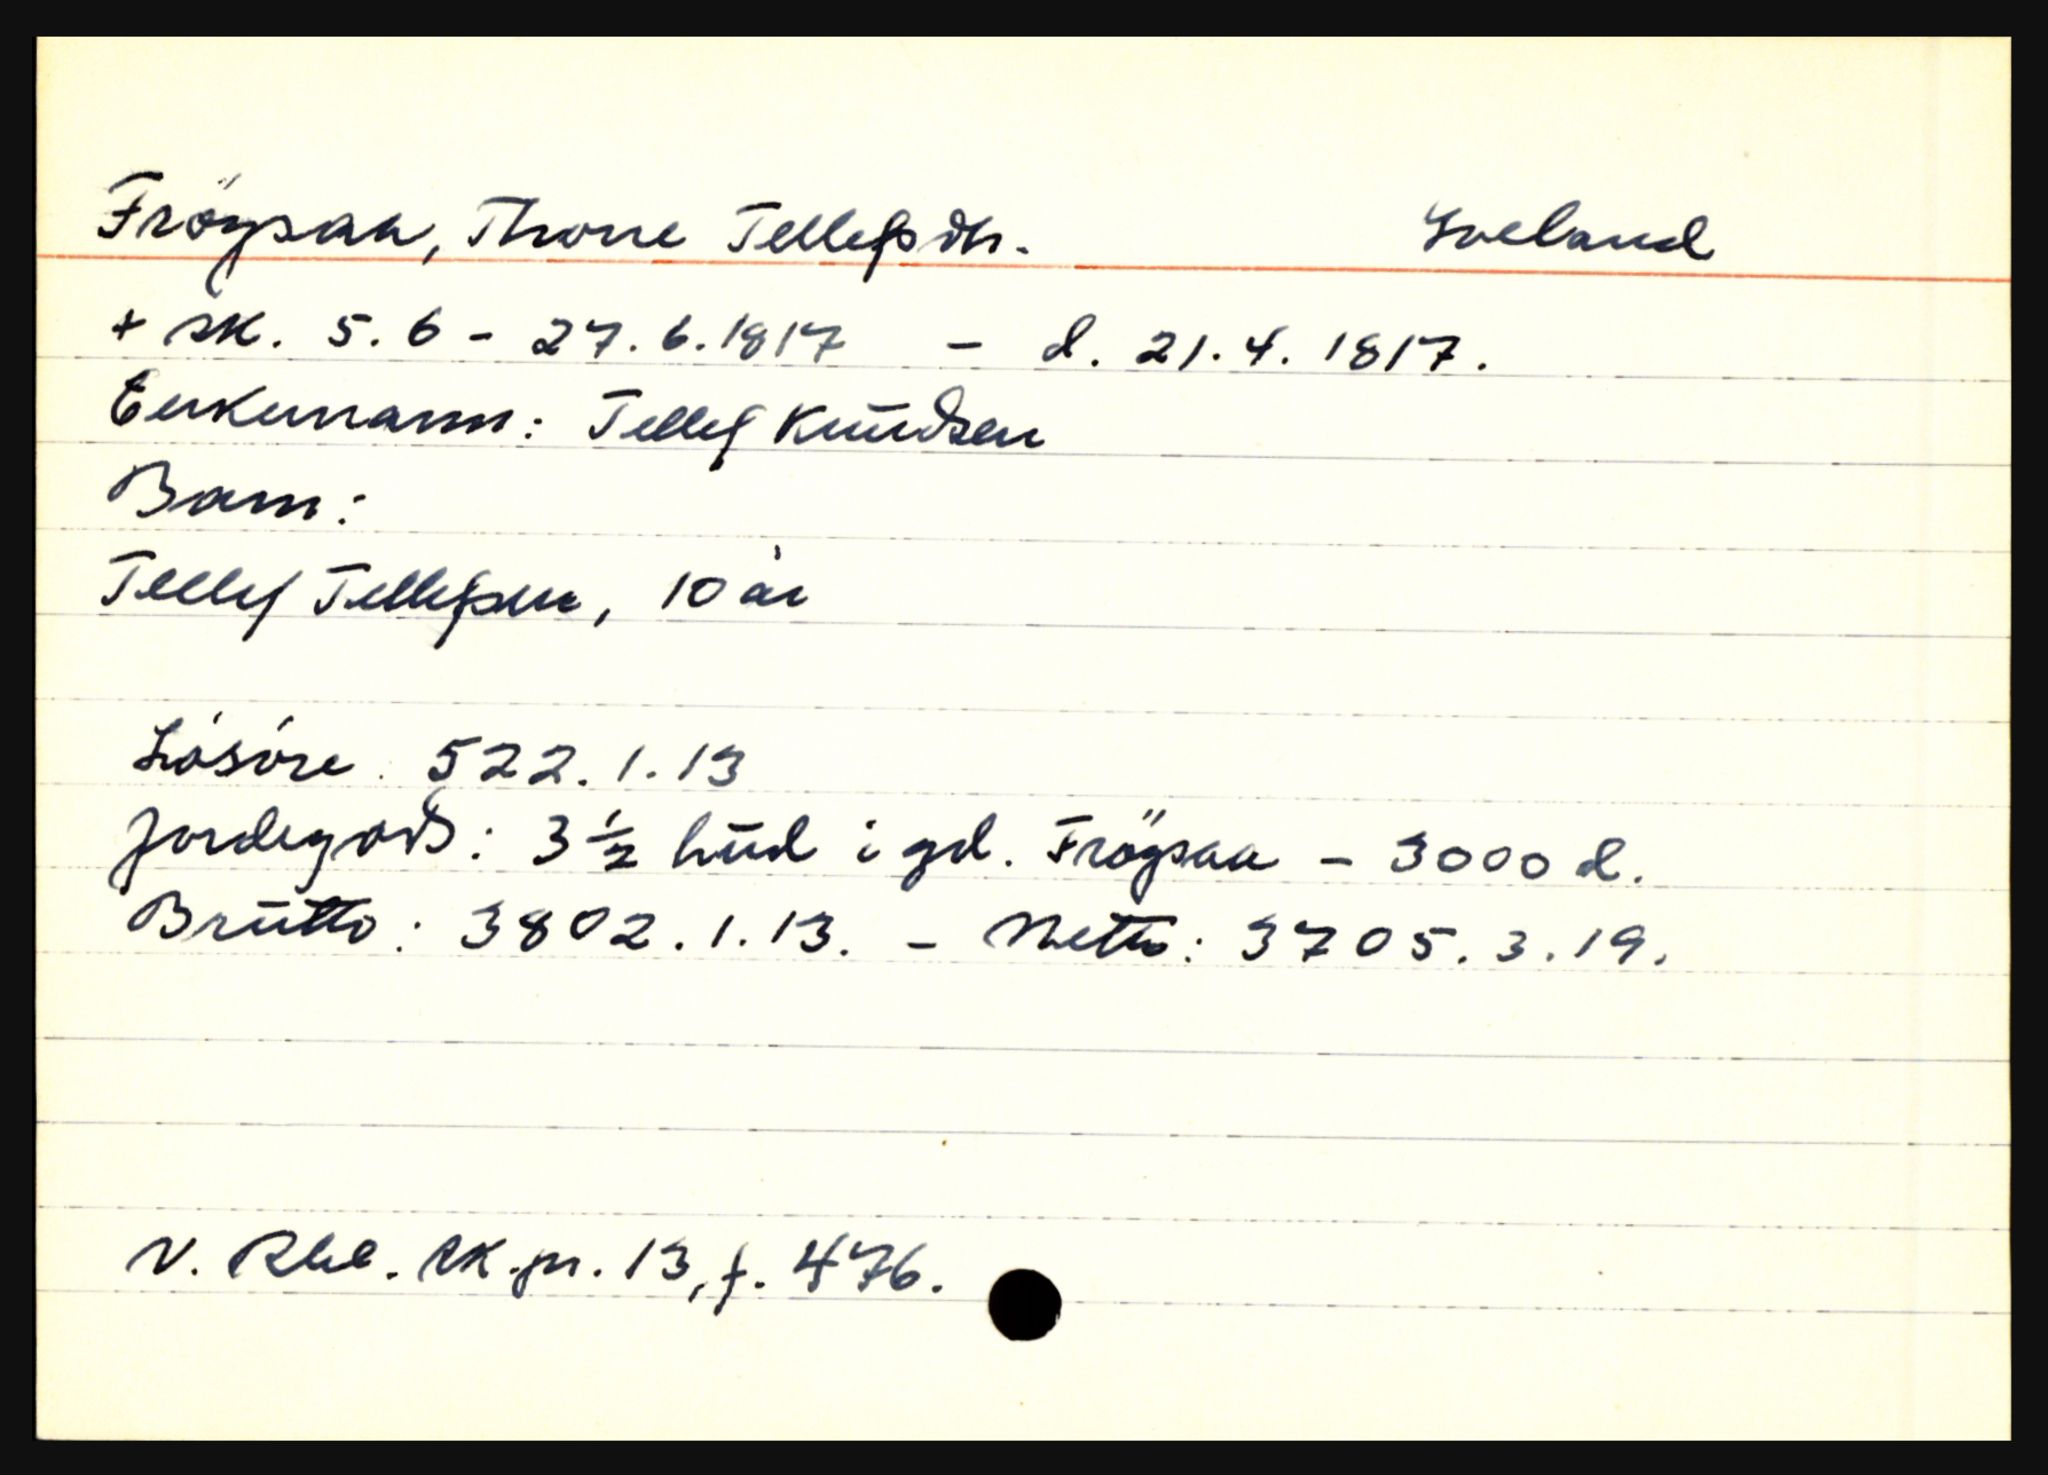 Fröysaa, Thorne Tellefsdtr. Iveland
+ sk. 5.6 - 27.6.1817 - d. 21.4.1817.
Enkemann: Tellef Knudsen
Barn:
Tellef Tellefsen, 10 år
Lösöre 522.1.13
Jordegods: 3 1/2 hud i gd. Fröysaa - 3000 d.
Brutto: 3802.1.13. - Netto: 3705.3.19.
V. Rbl. sk.pr. 13, f. 476.